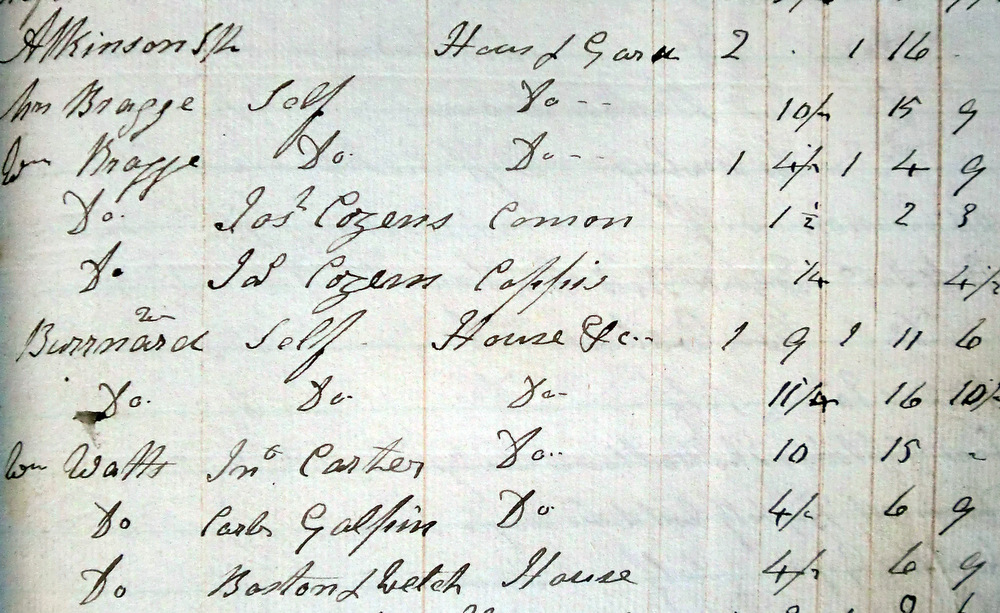 Atkinson Hous & Gard 2 . 1 16 .
Wm Bragge Self Do -- 10½ 15 9
Wm Bragge Do. Do -- 1 4½ 1 4 9
Do. Jos Cozens Comon 1½ 2 3
Do Jas Cozens Coppis ¼ 4½
Burrnard Self House &c .. 1 9 1 11 6
Do. Do- Do- 11¼ 16 10½
Wm Watts Jno Carter Do .. 10 15 -
Do Galpin Do. 4½ 6 9
Do Boston & Welch House 4½ 6 9